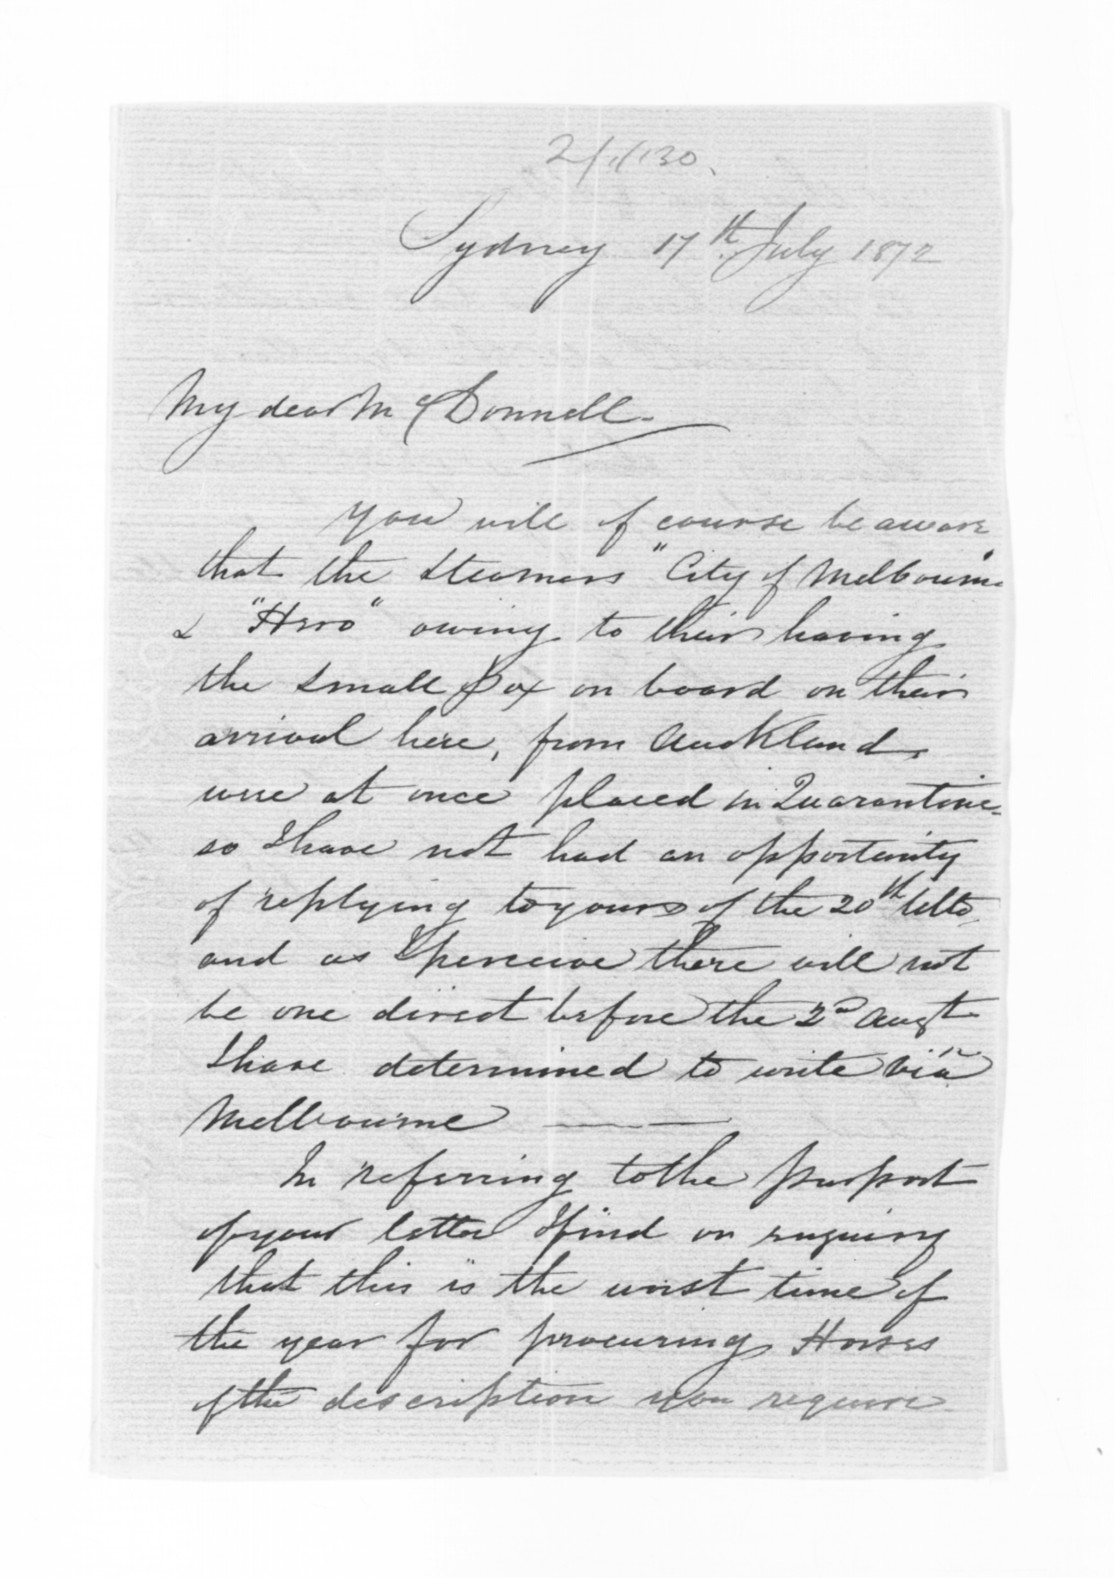 Sydney 17th July 1872
My dear McDonnell
You will of course be aware
that the Steamers "City of Melbourne"
& "Hero" owing to their having
the Small Pox on board on their
arrival here, from Auckland,
were at once placed in Quarantine
so I have not had an opportunity
of replying to yours of the 20th Ulto,
and as I perceive there will not
be one direct before the 2nd Augt
I have determined to write viâ
Melbourne
In referring to the purport
of your letter I find on enquiry
that this is the worst time of
the year for procuring Horses
of the description you require